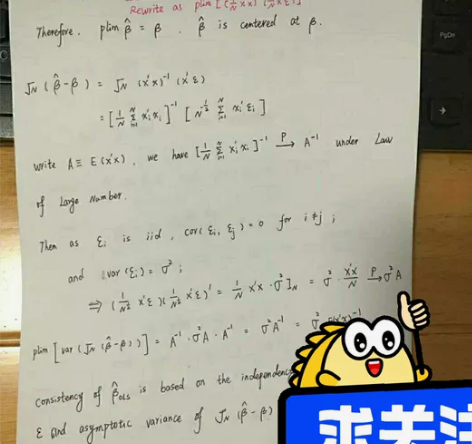 Rewrite as plim [(1/N X'X)
Therefore, plim β̂ = β . β̂ is centered at β.
√N (β̂-β) = √N (X'X)⁻¹ (X'ε)
= [1/N Σ xᵢ'xᵢ]⁻¹ [N^(-1/2) Σ xᵢ'εᵢ]
write A ≡ E(x'x), we have [1/N Σ xᵢ'xᵢ]⁻¹ →P A⁻¹ under Law
of Large Number.
Then as εᵢ is iid, cov(εᵢ, εⱼ) = 0 for i≠j ;
and var(εᵢ) = σ² ;
⇒ (1/N^(1/2) X'ε)(1/N^(1/2) X'ε)' = 1/N X'X · σ² I_N = σ² · X'X/N →P σ²A
plim [var (√N (β̂-β))] = A⁻¹ · σ²A · A⁻¹ = σ²A⁻¹ = σ²
consistency of β̂OLS is based on the
ε and asymptotic variance of √N (β̂-β)
求关注